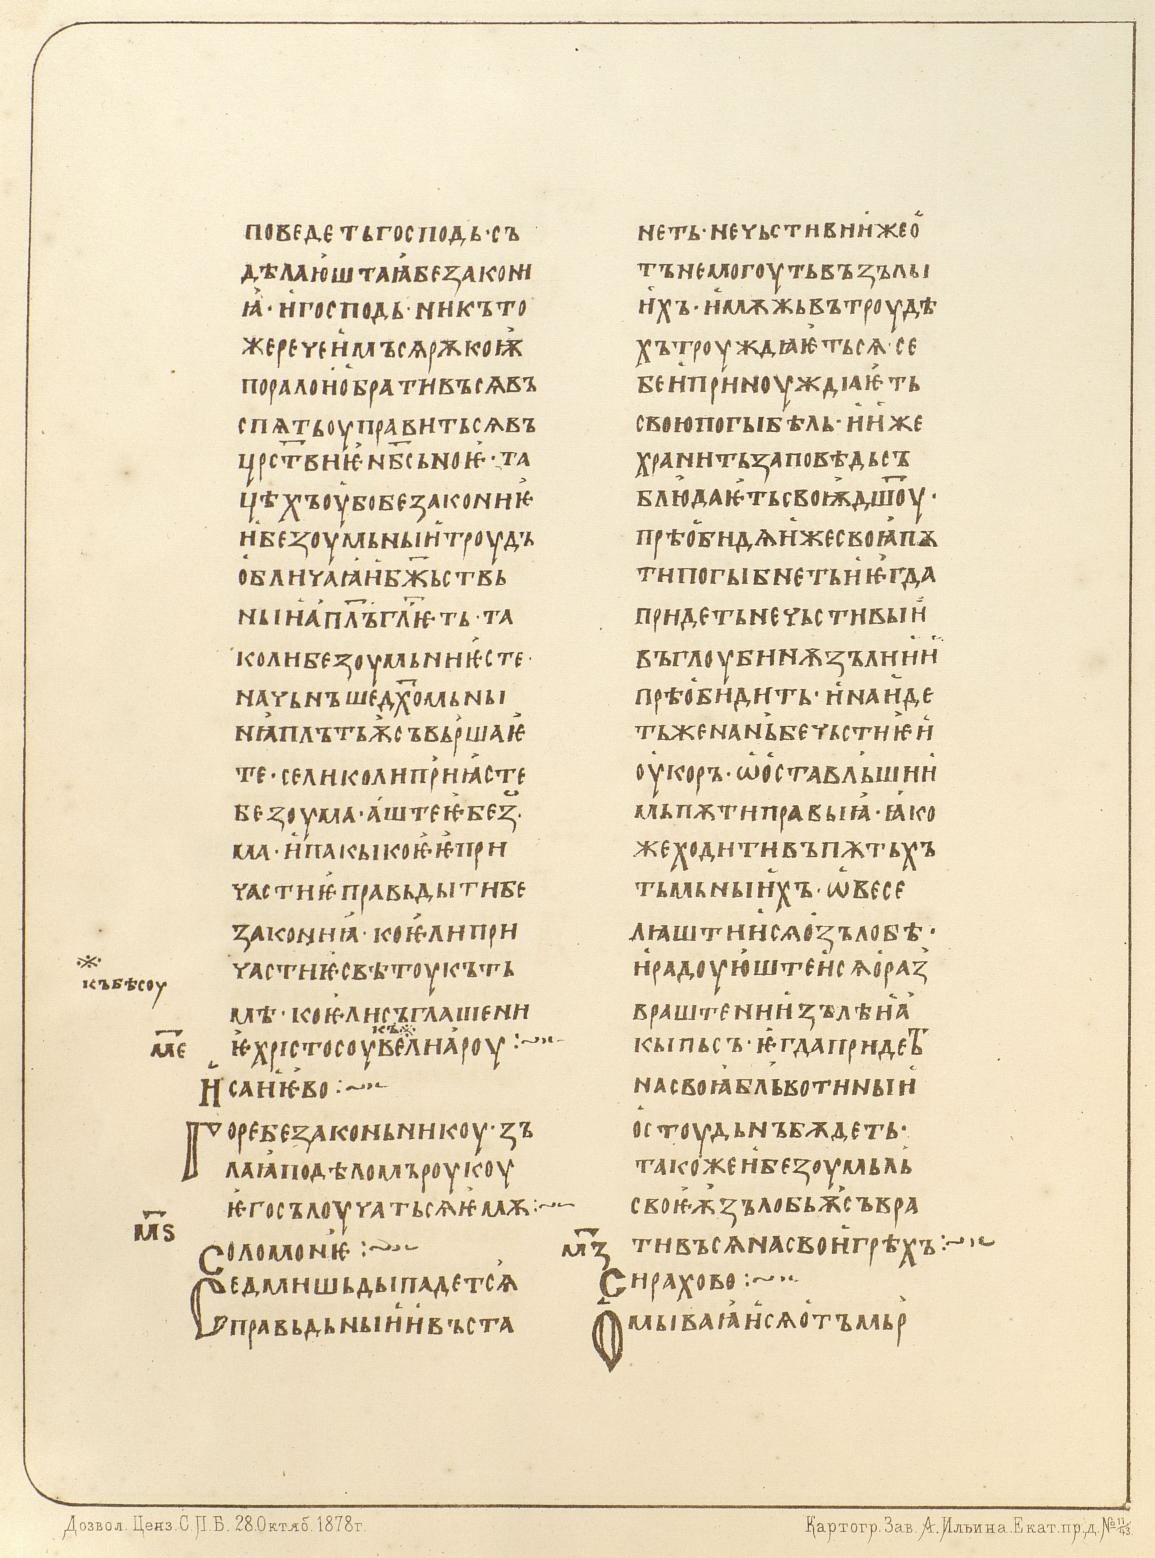 поведеть господь · съ
дѣлаюштаꙗ безакони
ꙗ · и господь · никъто
же рече имъ сѧ рѫкоѭ
по рало и обративъ сѧ въ
спѧть оуправить сѧ въ
црствиѥ нбсьноѥ · та
цѣхъ оубо безакониѥ
и безоумьныи троудъ
обличаꙗ и бжьствь
ныи аплъ глѥть · та
ко ли безоумьни ѥсте ·
начьнъше дхомь ны
нꙗ плътьѭ съвьршаѥ
те · се ли коли приꙗсте
безоума · аште ѥ без
ма · и пакы коѥ ѥ при
частиѥ правьды ти бе
закониꙗ · коѥ ли при
частиѥ свѣтоу къ ть
мѣ · коѥ ли съглашени
ѥ христосоу велиароу :~
※
къ бѣсоу
къ※
м҃е
Исаиѥво :~
Горе безаконьникоу · зъ
лаꙗ по дѣломъ роукоу
ѥго сълоучать сѧ ѥмѫ :~
м҃ѕ
Соломонѥ :~
Седмишьды падетсѧ
правьдьныи и въста
неть · нечьстивии же о
тънемогоуть въ зълы
ихъ · и мѫжь въ троудѣ
хъ троуждꙗѥтьсѧ · се
бе и приноуждꙗѥть
свою погыбѣль · и иже
хранить заповѣдь съ
блюдаѥть своѭ дшоу ·
прѣобидѧи же своꙗ пѫ
ти погыбнеть и ѥгда
придеть нечьстивыи
въ глоубинѫ зълии
прѣобидить · и наиде
ть же нань бечьстиѥ и
оукоръ · ѡ оставльшии
мь пѫти правыꙗ · ꙗко
же ходити въ пѫтьхъ
тьмьныихъ · ѡ весе
лꙗштиисѧ о зълобѣ ·
и радоуюштеисѧ о раз
враштении зълѣ и а
кы пьсъ · ѥгда придеть
на своꙗ бльвотины и
остоудьнъ бѫдеть ·
тако же и безоумьль
своѥѭ зълобьѭ съвра
тивъсѧ на свои грѣхъ :~
м҃з
Сирахово :~
Омываꙗисѧ отъ мьр
Дозвол. Ценз. С.П.Б. 28. Октяб. 1878 г.
Картогр. Зав. А. Ильина. Екат. пр. д. № 11/43.